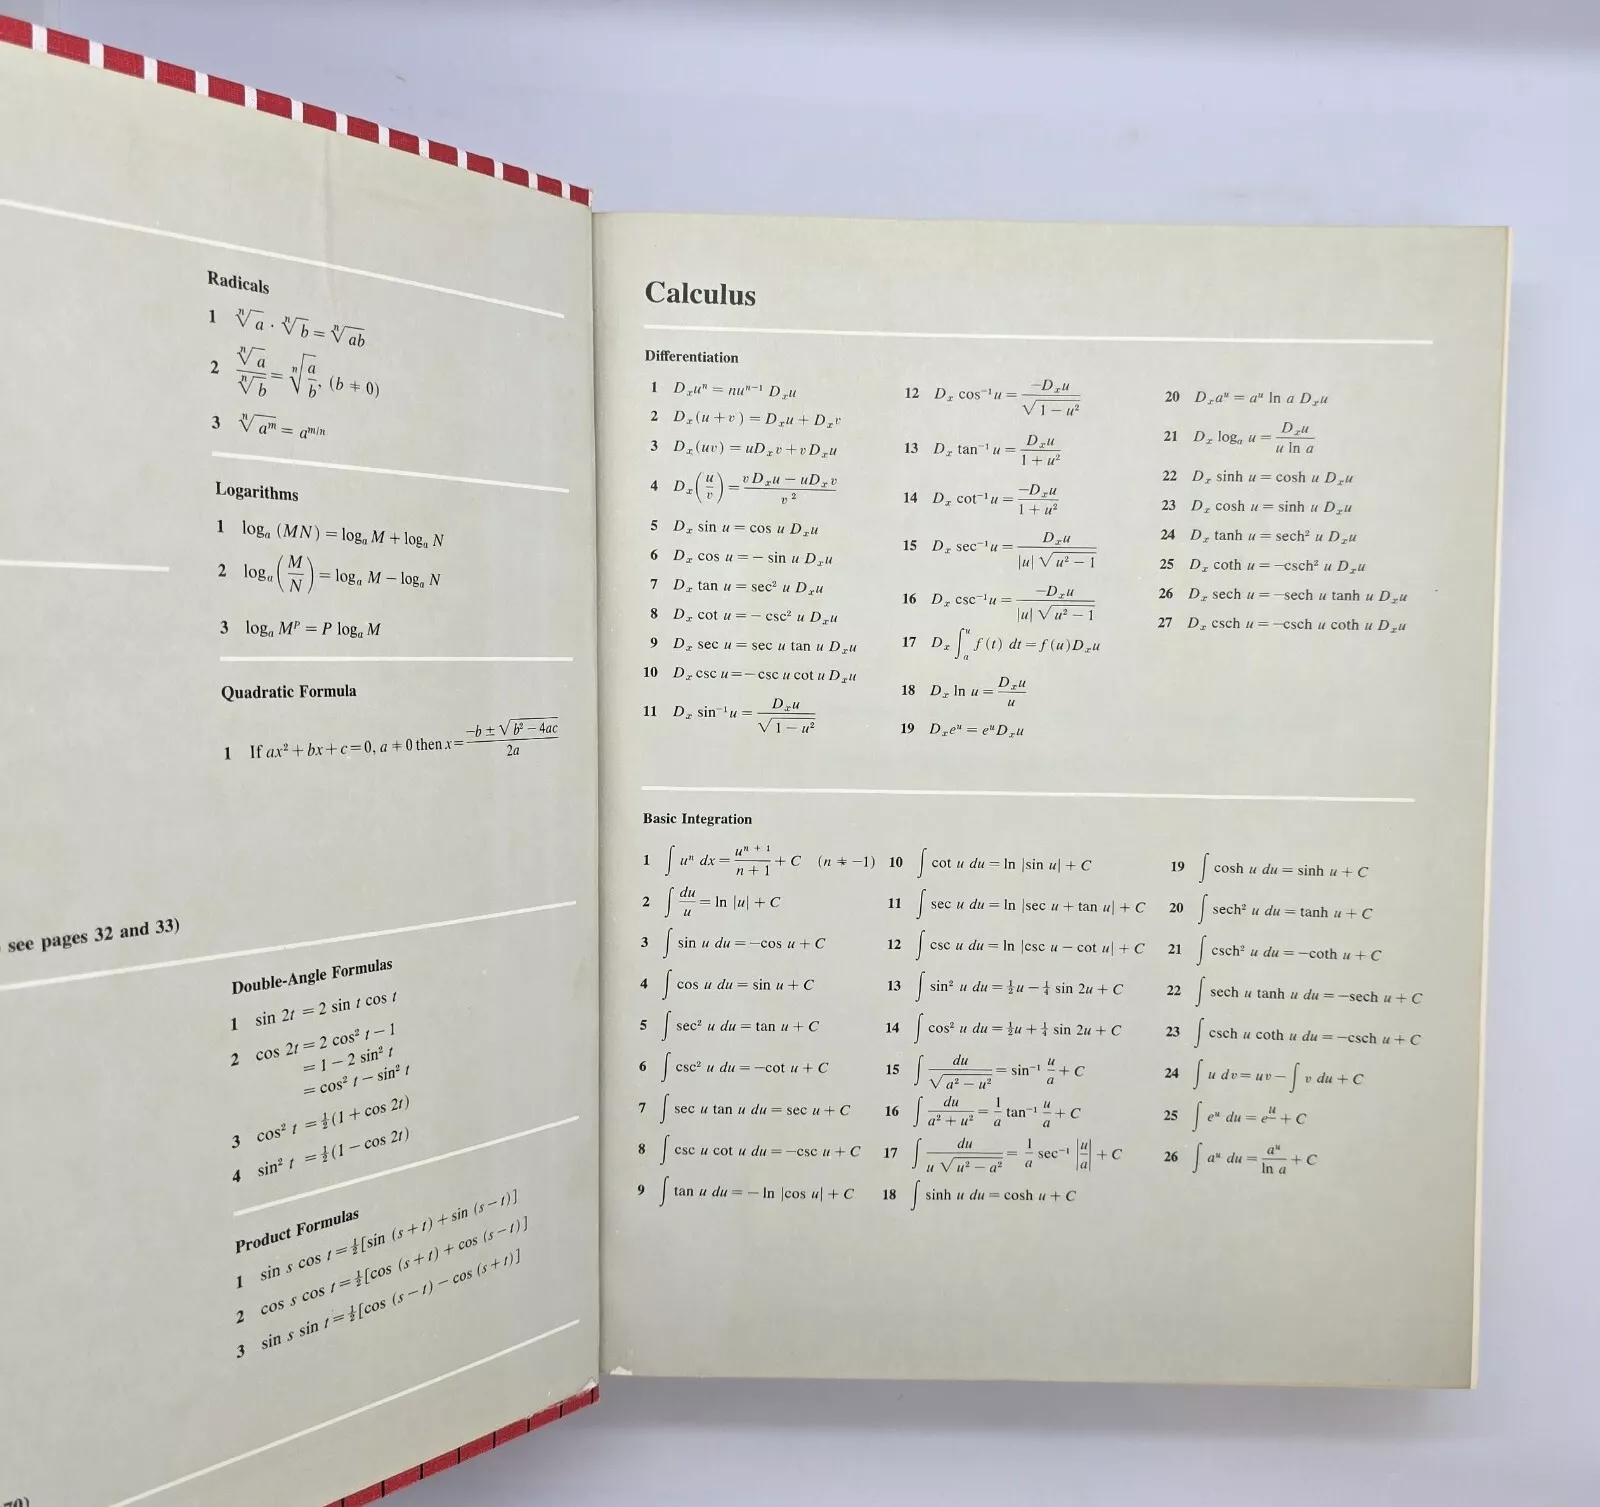 Radicals
1 ⁿ√a · ⁿ√b = ⁿ√ab
2 ⁿ√a / ⁿ√b = ⁿ√(a/b), (b ≠ 0)
3 ⁿ√aᵐ = a^(m/n)
Logarithms
1 logₐ (MN) = logₐ M + logₐ N
2 logₐ (M/N) = logₐ M − logₐ N
3 logₐ Mᴾ = P logₐ M
Quadratic Formula
1 If ax² + bx + c = 0, a ≠ 0 then x = (−b ± √(b² − 4ac)) / 2a
see pages 32 and 33)
Double-Angle Formulas
1 sin 2t = 2 sin t cos t
2 cos 2t = 2 cos² t − 1
= 1 − 2 sin² t
= cos² t − sin² t
3 cos² t = ½(1 + cos 2t)
4 sin² t = ½(1 − cos 2t)
Product Formulas
1 sin s cos t = ½[sin (s + t) + sin (s − t)]
2 cos s cos t = ½[cos (s + t) + cos (s − t)]
3 sin s sin t = ½[cos (s − t) − cos (s + t)]
70)
Calculus
Differentiation
1 Dₓuⁿ = nuⁿ⁻¹ Dₓu
2 Dₓ(u + v) = Dₓu + Dₓv
3 Dₓ(uv) = uDₓv + vDₓu
4 Dₓ(u/v) = (vDₓu − uDₓv) / v²
5 Dₓ sin u = cos u Dₓu
6 Dₓ cos u = − sin u Dₓu
7 Dₓ tan u = sec² u Dₓu
8 Dₓ cot u = − csc² u Dₓu
9 Dₓ sec u = sec u tan u Dₓu
10 Dₓ csc u = − csc u cot u Dₓu
11 Dₓ sin⁻¹u = Dₓu / √(1 − u²)
12 Dₓ cos⁻¹u = −Dₓu / √(1 − u²)
13 Dₓ tan⁻¹u = Dₓu / (1 + u²)
14 Dₓ cot⁻¹u = −Dₓu / (1 + u²)
15 Dₓ sec⁻¹u = Dₓu / (|u| √(u² − 1))
16 Dₓ csc⁻¹u = −Dₓu / (|u| √(u² − 1))
17 Dₓ ∫ₐᵘ f(t) dt = f(u)Dₓu
18 Dₓ ln u = Dₓu / u
19 Dₓeᵘ = eᵘDₓu
20 Dₓaᵘ = aᵘ ln a Dₓu
21 Dₓ logₐ u = Dₓu / (u ln a)
22 Dₓ sinh u = cosh u Dₓu
23 Dₓ cosh u = sinh u Dₓu
24 Dₓ tanh u = sech² u Dₓu
25 Dₓ coth u = −csch² u Dₓu
26 Dₓ sech u = −sech u tanh u Dₓu
27 Dₓ csch u = −csch u coth u Dₓu
Basic Integration
1 ∫ uⁿ dx = uⁿ⁺¹ / (n + 1) + C (n ≠ −1)
2 ∫ du/u = ln |u| + C
3 ∫ sin u du = −cos u + C
4 ∫ cos u du = sin u + C
5 ∫ sec² u du = tan u + C
6 ∫ csc² u du = −cot u + C
7 ∫ sec u tan u du = sec u + C
8 ∫ csc u cot u du = −csc u + C
9 ∫ tan u du = − ln |cos u| + C
10 ∫ cot u du = ln |sin u| + C
11 ∫ sec u du = ln |sec u + tan u| + C
12 ∫ csc u du = ln |csc u − cot u| + C
13 ∫ sin² u du = ½u − ¼ sin 2u + C
14 ∫ cos² u du = ½u + ¼ sin 2u + C
15 ∫ du / √(a² − u²) = sin⁻¹ u/a + C
16 ∫ du / (a² + u²) = 1/a tan⁻¹ u/a + C
17 ∫ du / (u √(u² − a²)) = 1/a sec⁻¹ |u/a| + C
18 ∫ sinh u du = cosh u + C
19 ∫ cosh u du = sinh u + C
20 ∫ sech² u du = tanh u + C
21 ∫ csch² u du = −coth u + C
22 ∫ sech u tanh u du = −sech u + C
23 ∫ csch u coth u du = −csch u + C
24 ∫ u dv = uv − ∫ v du + C
25 ∫ eᵘ du = eᵘ + C
26 ∫ aᵘ du = aᵘ / ln a + C